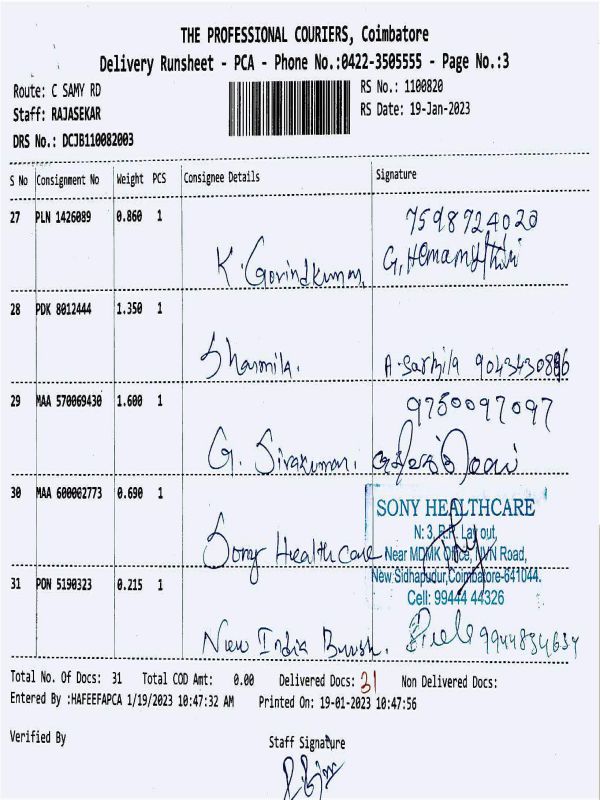 THE PROFESSIONAL COURIERS, Coimbatore
Delivery Runsheet - PCA - Phone No.:0422-3505555 - Page No.:3
Route: C SAMY RD RS No.: 1100820
Staff: RAJASEKAR RS Date: 19-Jan-2023
DRS No.: DCJB110082003
S No Consignment No Weight PCS Consignee Details Signature
27 PLN 1426089 0.860 1 7598724020
K. Govindkumar G. Hemamythiri
28 PDK 8012444 1.350 1
Sharmila. A. Sarmila 9043430896
29 MAA 570069430 1.600 1 9750097097
G. Sivakumar.
30 MAA 600062773 0.690 1 SONY HEALTHCARE
N: 3, R.R. Lay out,
Sony Healthcare Near MDMK Office, NVN Road,
New Sidhapudur, Coimbatore-641044.
31 PON 5190323 0.215 1 Cell: 99444 44326
New India Brush. 9944834634
Total No. Of Docs: 31 Total COD Amt: 0.00 Delivered Docs: 31 Non Delivered Docs:
Entered By :HAFEEFAPCA 1/19/2023 10:47:32 AM Printed On: 19-01-2023 10:47:56
Verified By Staff Signature